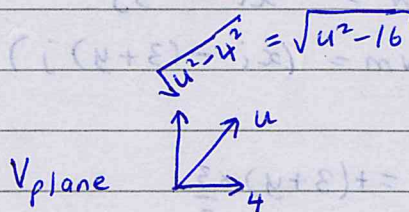 √(u²-4²) = √(u²-16)
u
V plane
4